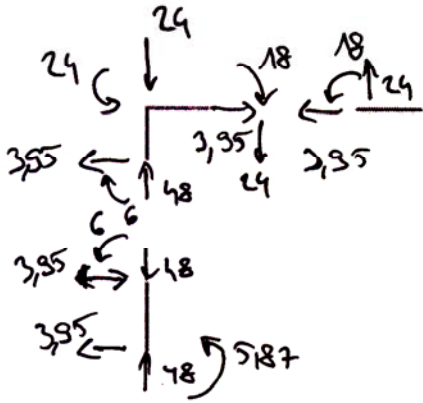 24
24
18
18
24
3,95
3,95
3,95
48
24
6 6
3,95
48
3,95
48
5,87